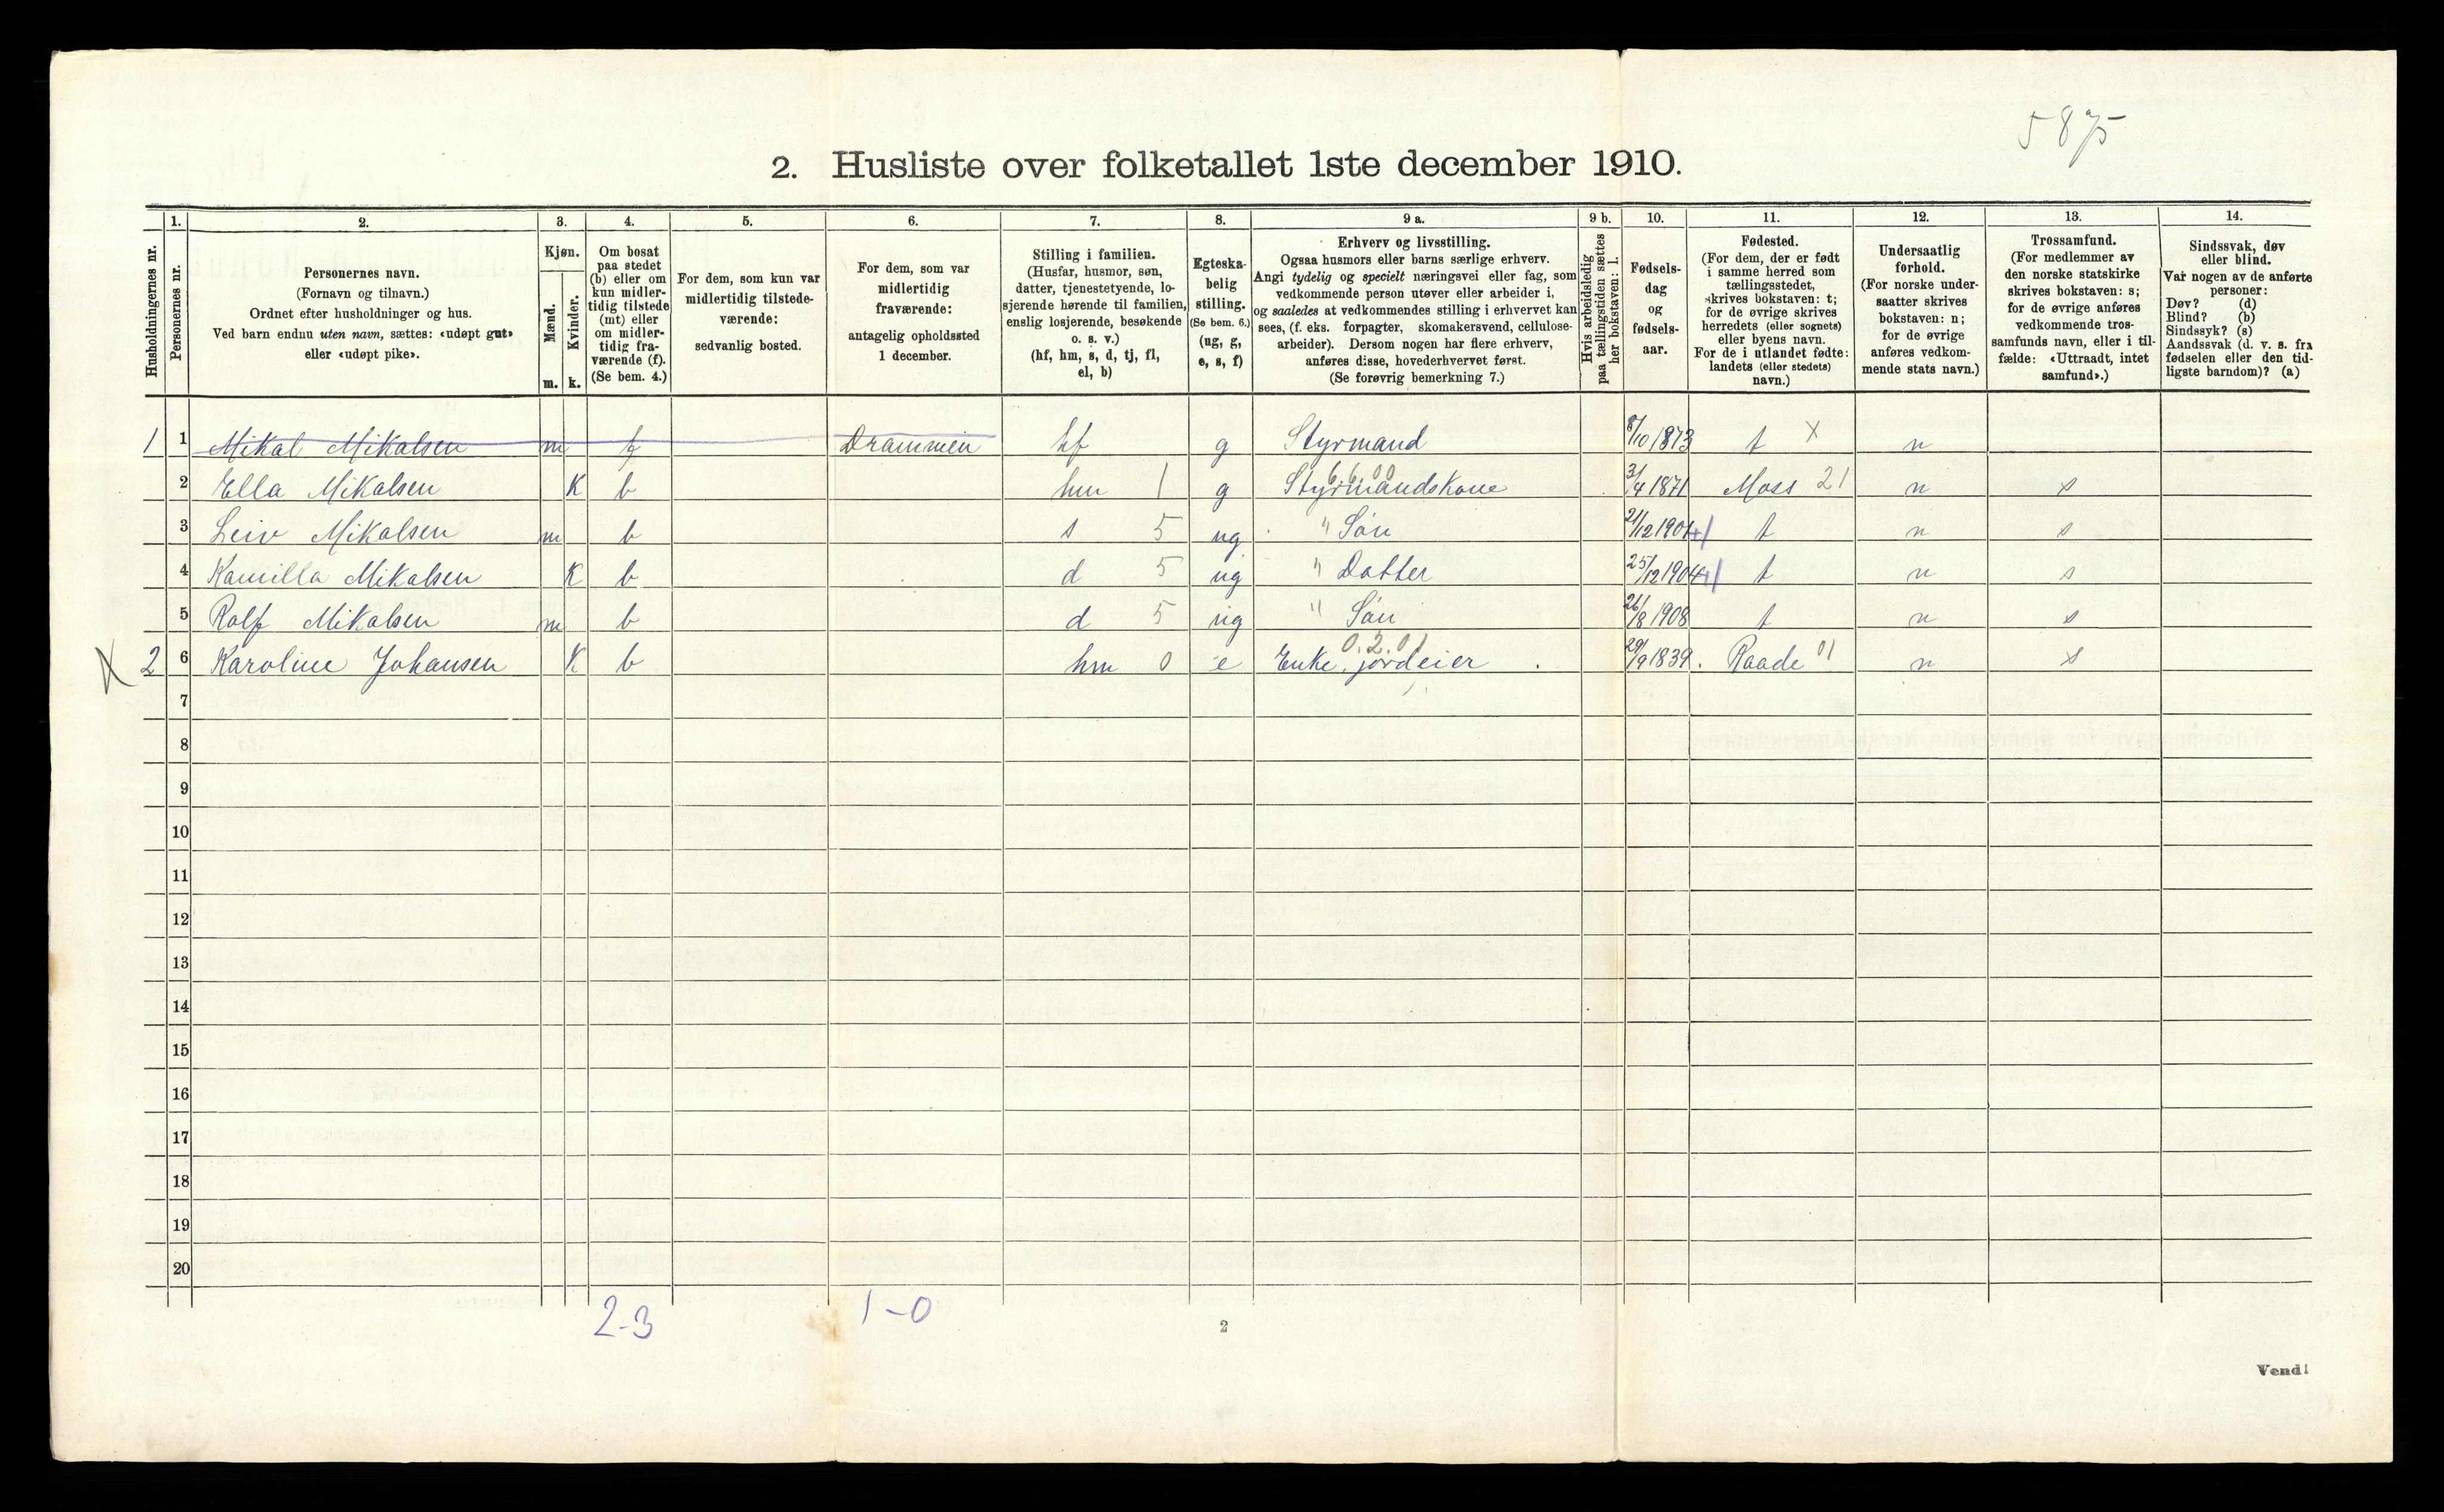 5875
2. Husliste over folketallet 1ste december 1910.
Husholdningernes nr.
1.
Personernes nr.
2.
Personernes navn.
(Fornavn og tilnavn.)
Ordnet efter husholdninger og hus.
Ved barn endnu uten navn, sættes: «udøpt gut»
eller «udøpt pike».
3.
Kjøn.
Mænd.
m.
Kvinder.
k.
4.
Om bosat
paa stedet
(b) eller om
kun midler-
tidig tilstede
(mt) eller
om midler-
tidig fra-
værende (f).
(Se bem. 4.)
5.
For dem, som kun var
midlertidig tilstede-
værende:
sedvanlig bosted.
6.
For dem, som var
midlertidig
fraværende:
antagelig opholdssted
1 december.
7.
Stilling i familien.
(Husfar, husmor, søn,
datter, tjenestetyende, lo-
sjerende hørende til familien,
enslig losjerende, besøkende
o. s. v.)
(hf, hm, s, d, tj, fl,
el, b)
8.
Egteska-
belig
stilling.
(Se bem. 6.)
(ug, g,
e, s, f)
9 a.
Erhverv og livsstilling.
Ogsaa husmors eller barns særlige erhverv.
Angi tydelig og specielt næringsvei eller fag, som
vedkommende person utøver eller arbeider i,
og saaledes at vedkommendes stilling i erhvervet kan
sees, (f. eks. forpagter, skomakersvend, cellulose-
arbeider). Dersom nogen har flere erhverv,
anføres disse, hovederhvervet først.
(Se forøvrig bemerkning 7.)
9 b.
Hvis arbeidsledig
paa tællingstiden sættes
her bokstaven: l.
10.
Fødsels-
dag
og
fødsels-
aar.
11.
Fødested.
(For dem, der er født
i samme herred som
tællingsstedet,
skrives bokstaven: t;
for de øvrige skrives
herredets (eller sognets)
eller byens navn.
For de i utlandet fødte:
landets (eller stedets)
navn.)
12.
Undersaatlig
forhold.
(For norske under-
saatter skrives
bokstaven: n;
for de øvrige
anføres vedkom-
mende stats navn.)
13.
Trossamfund.
(For medlemmer av
den norske statskirke
skrives bokstaven: s;
for de øvrige anføres
vedkommende tros-
samfunds navn, eller i til-
fælde: «Uttraadt, intet
samfund».)
14.
Sindssvak, døv
eller blind.
Var nogen av de anførte
personer:
Døv? (d)
Blind? (b)
Sindssyk? (s)
Aandssvak (d. v. s. fra
fødselen eller den tid-
ligste barndom)? (a)
1 1 Mikal Mikalsen m f Drammen hf g Styrmand 8/10 1873 t X n
2 Ella Mikalsen K b hm 1 g Styrmandskone 6600 3/4 1871 Moss 21 n s
3 Leiv Mikalsen m b s 5 ug " Søn 21/12 1901 t n s
4 Kamilla Mikalsen K b d 5 ug " Datter 25/12 1904 t n s
5 Rolf Mikalsen m b d 5 ug " Søn 26/8 1908 t n s
X 2 6 Karoline Johansen K b hm 0 e Enke, jordeier 0.2.01 29/9 1839. Raade 01 n s
7
8
9
10
11
12
13
14
15
16
17
18
19
20
2-3 1-0
2
Vend!